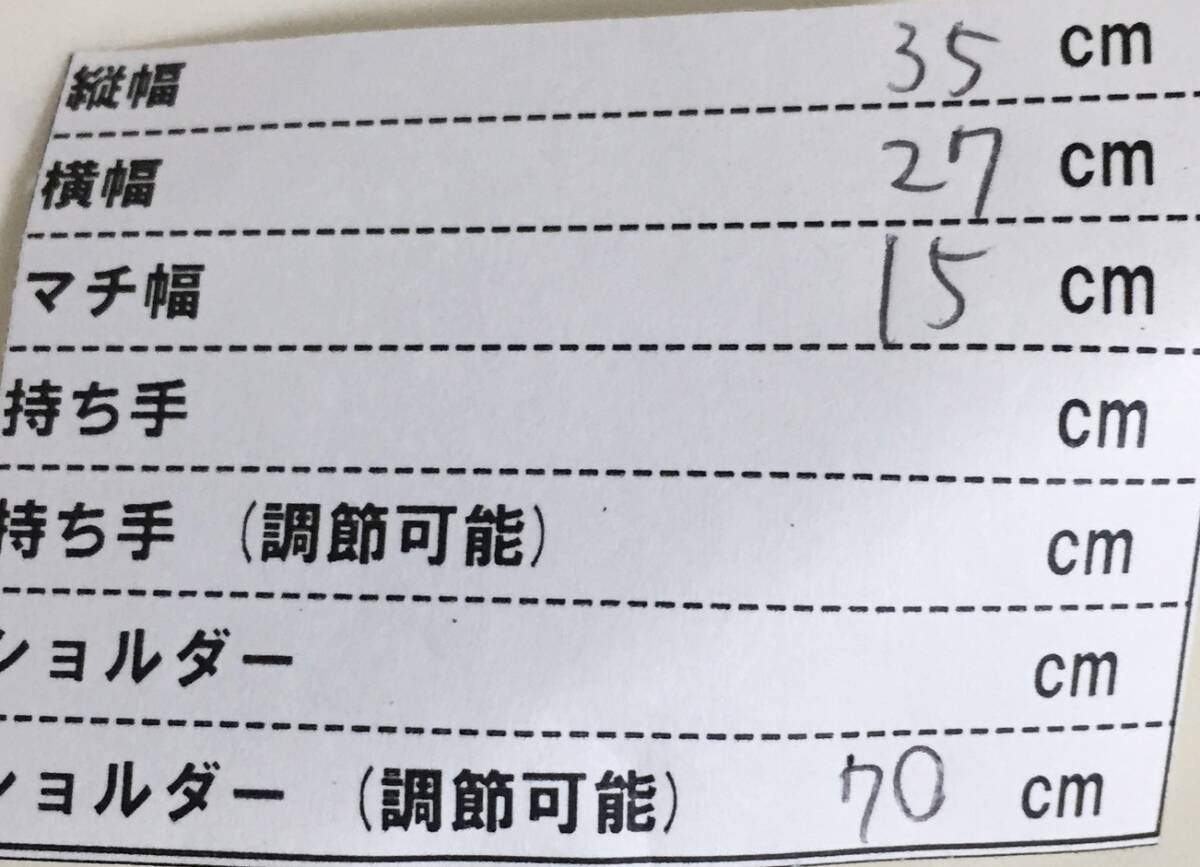 縦幅 35 cm
横幅 27 cm
マチ幅 15 cm
持ち手 cm
持ち手 (調節可能) cm
ショルダー cm
ショルダー (調節可能) 70 cm